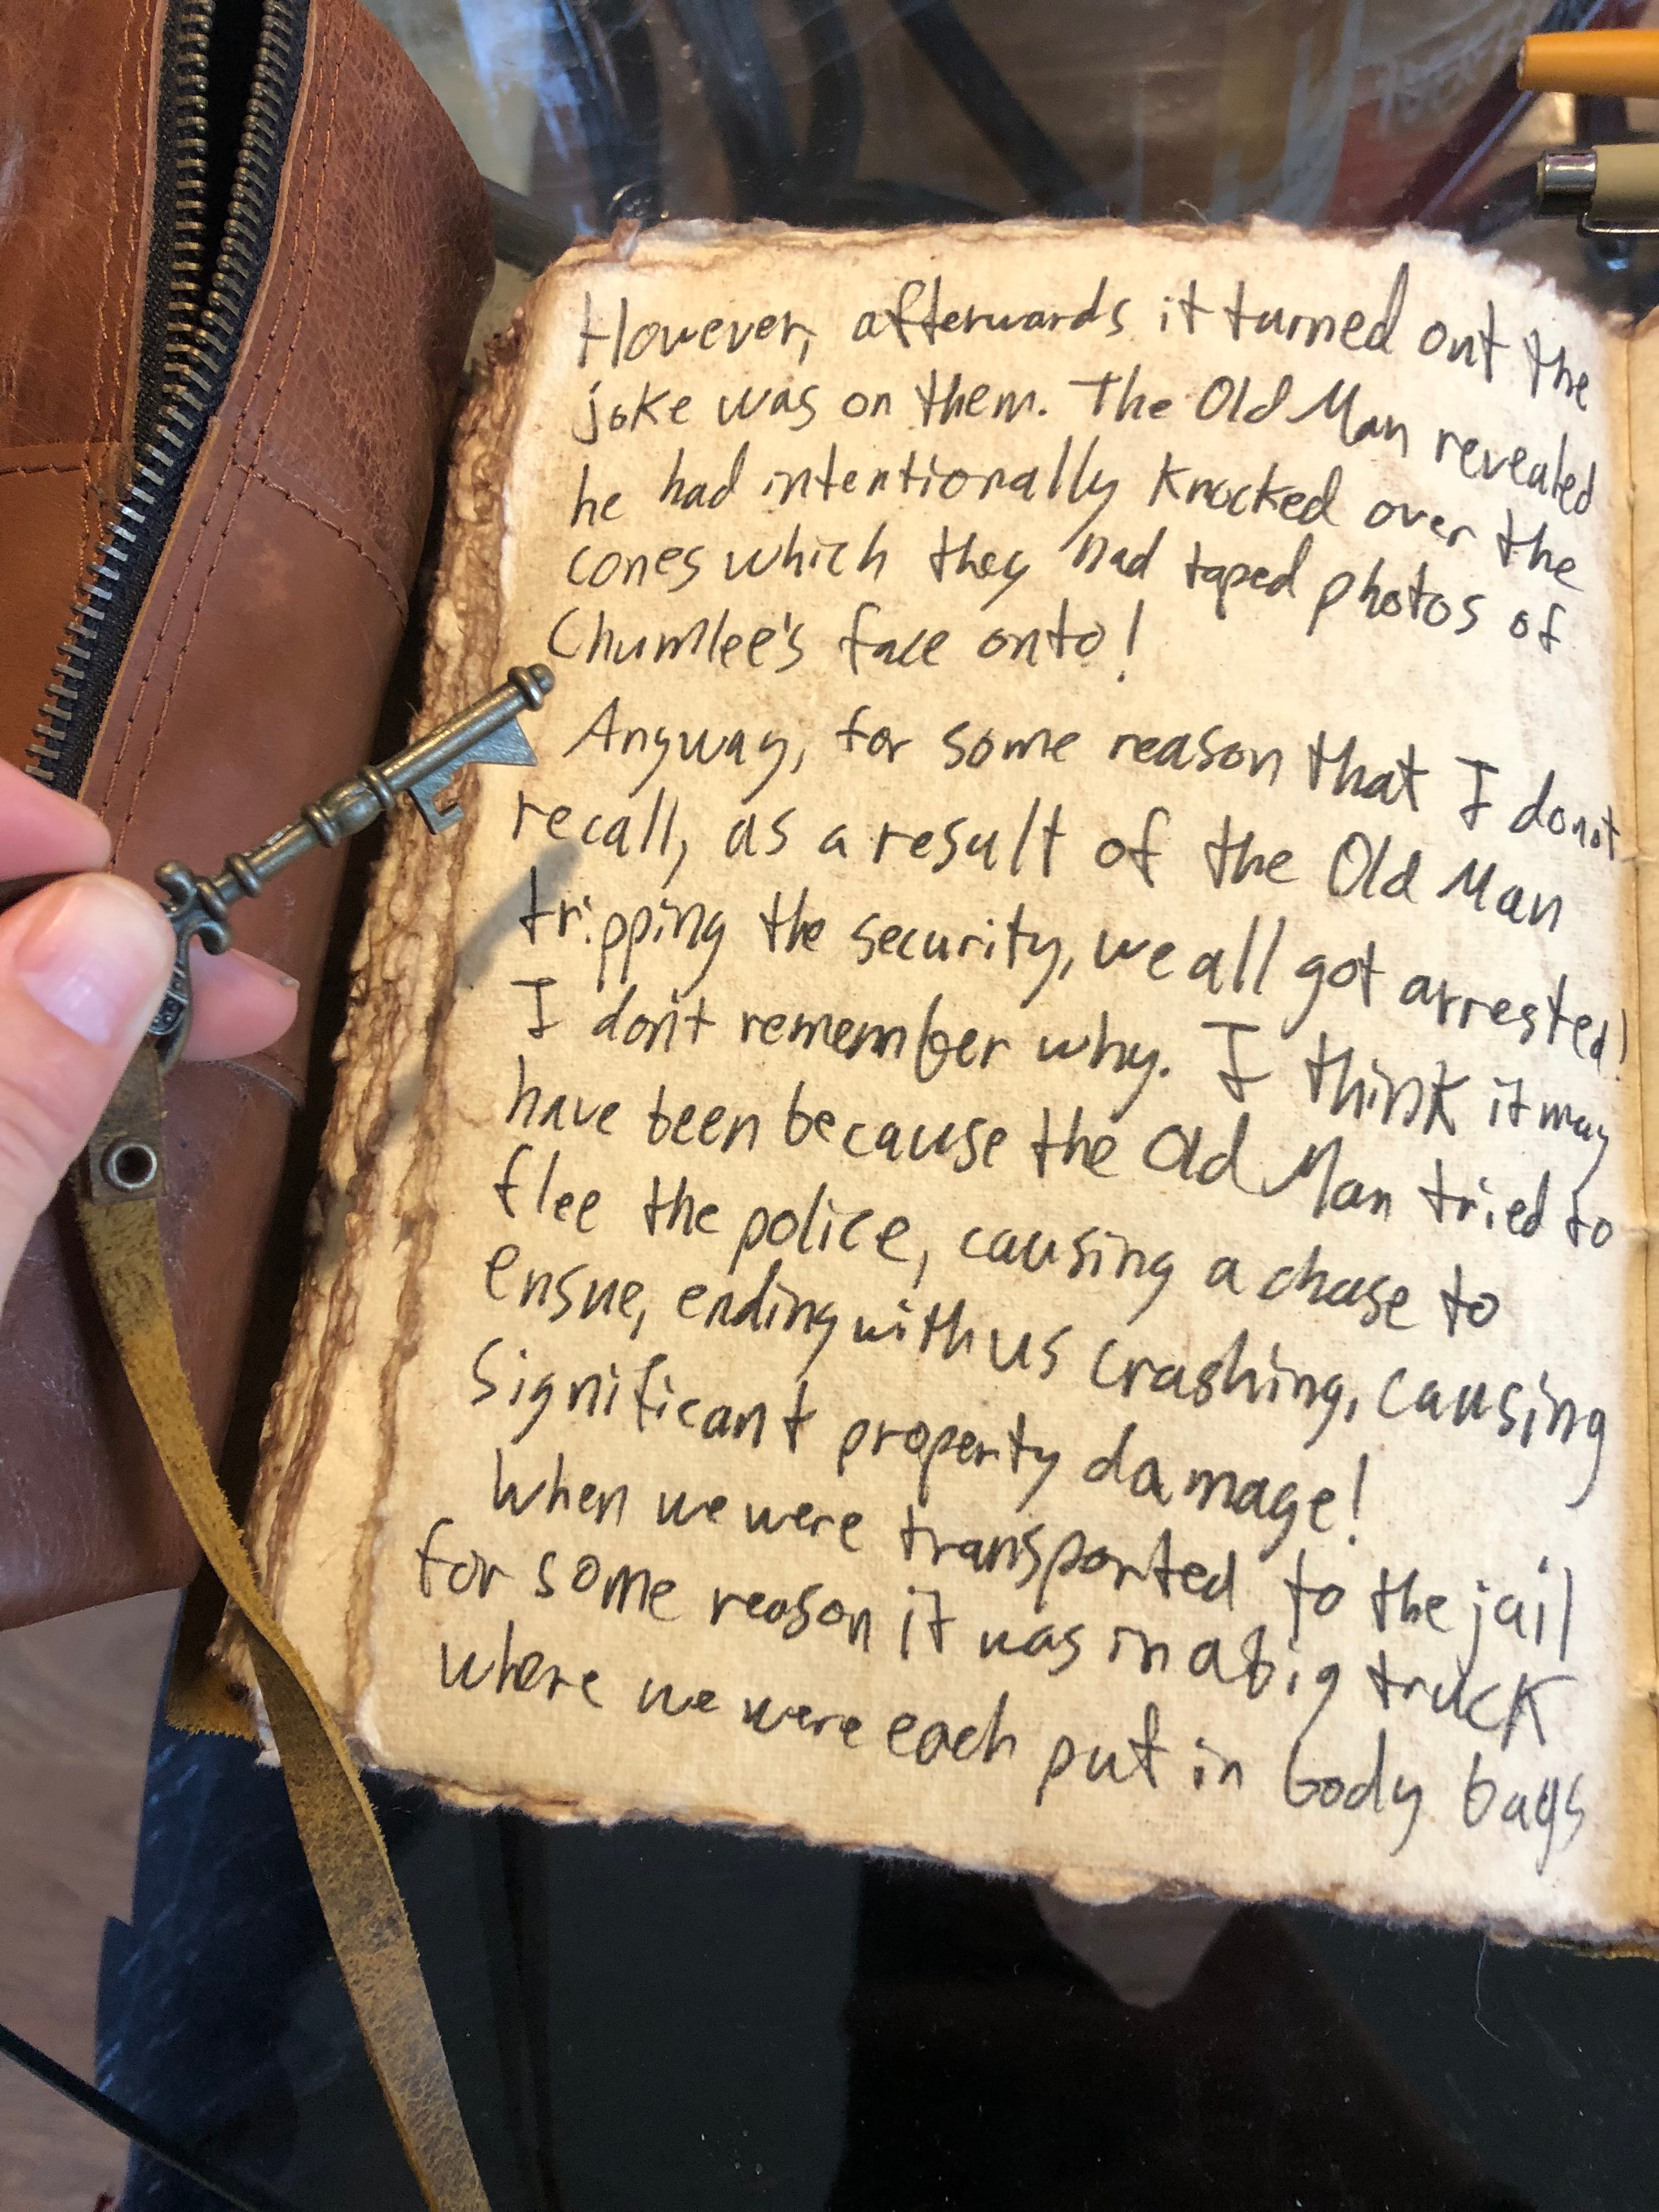 However, afterwards it turned out the
joke was on them. The Old Man revealed
he had intentionally knocked over the
cones which they had taped photos of
Chumlee's face onto!
Anyway, for some reason that I do not
recall, as a result of the Old Man
tripping the security, we all got arrested!
I don't remember why. I think it may
have been because the Old Man tried to
flee the police, causing a chase to
ensue, ending with us crashing, causing
significant property damage!
When we were transported to the jail
for some reason it was in a big truck
where we were each put in body bags